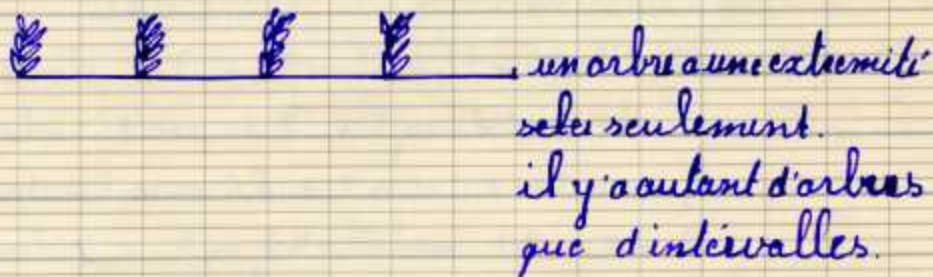 un arbre a une extremité
seleu seulement.
il y'a autant d'arbres
que d'intérvalles.